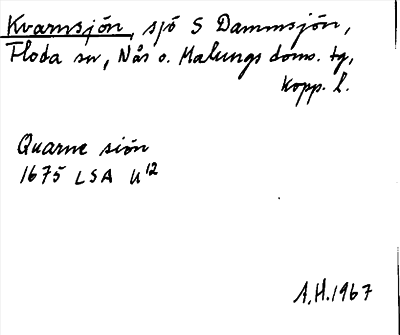 Kvarnsjön, sjö S Dammsjön,
Floda sn, Nås o. Malungs doms. tg,
Kopp. l.
Quarne siön
1675 LSA U12
A.H. 1967